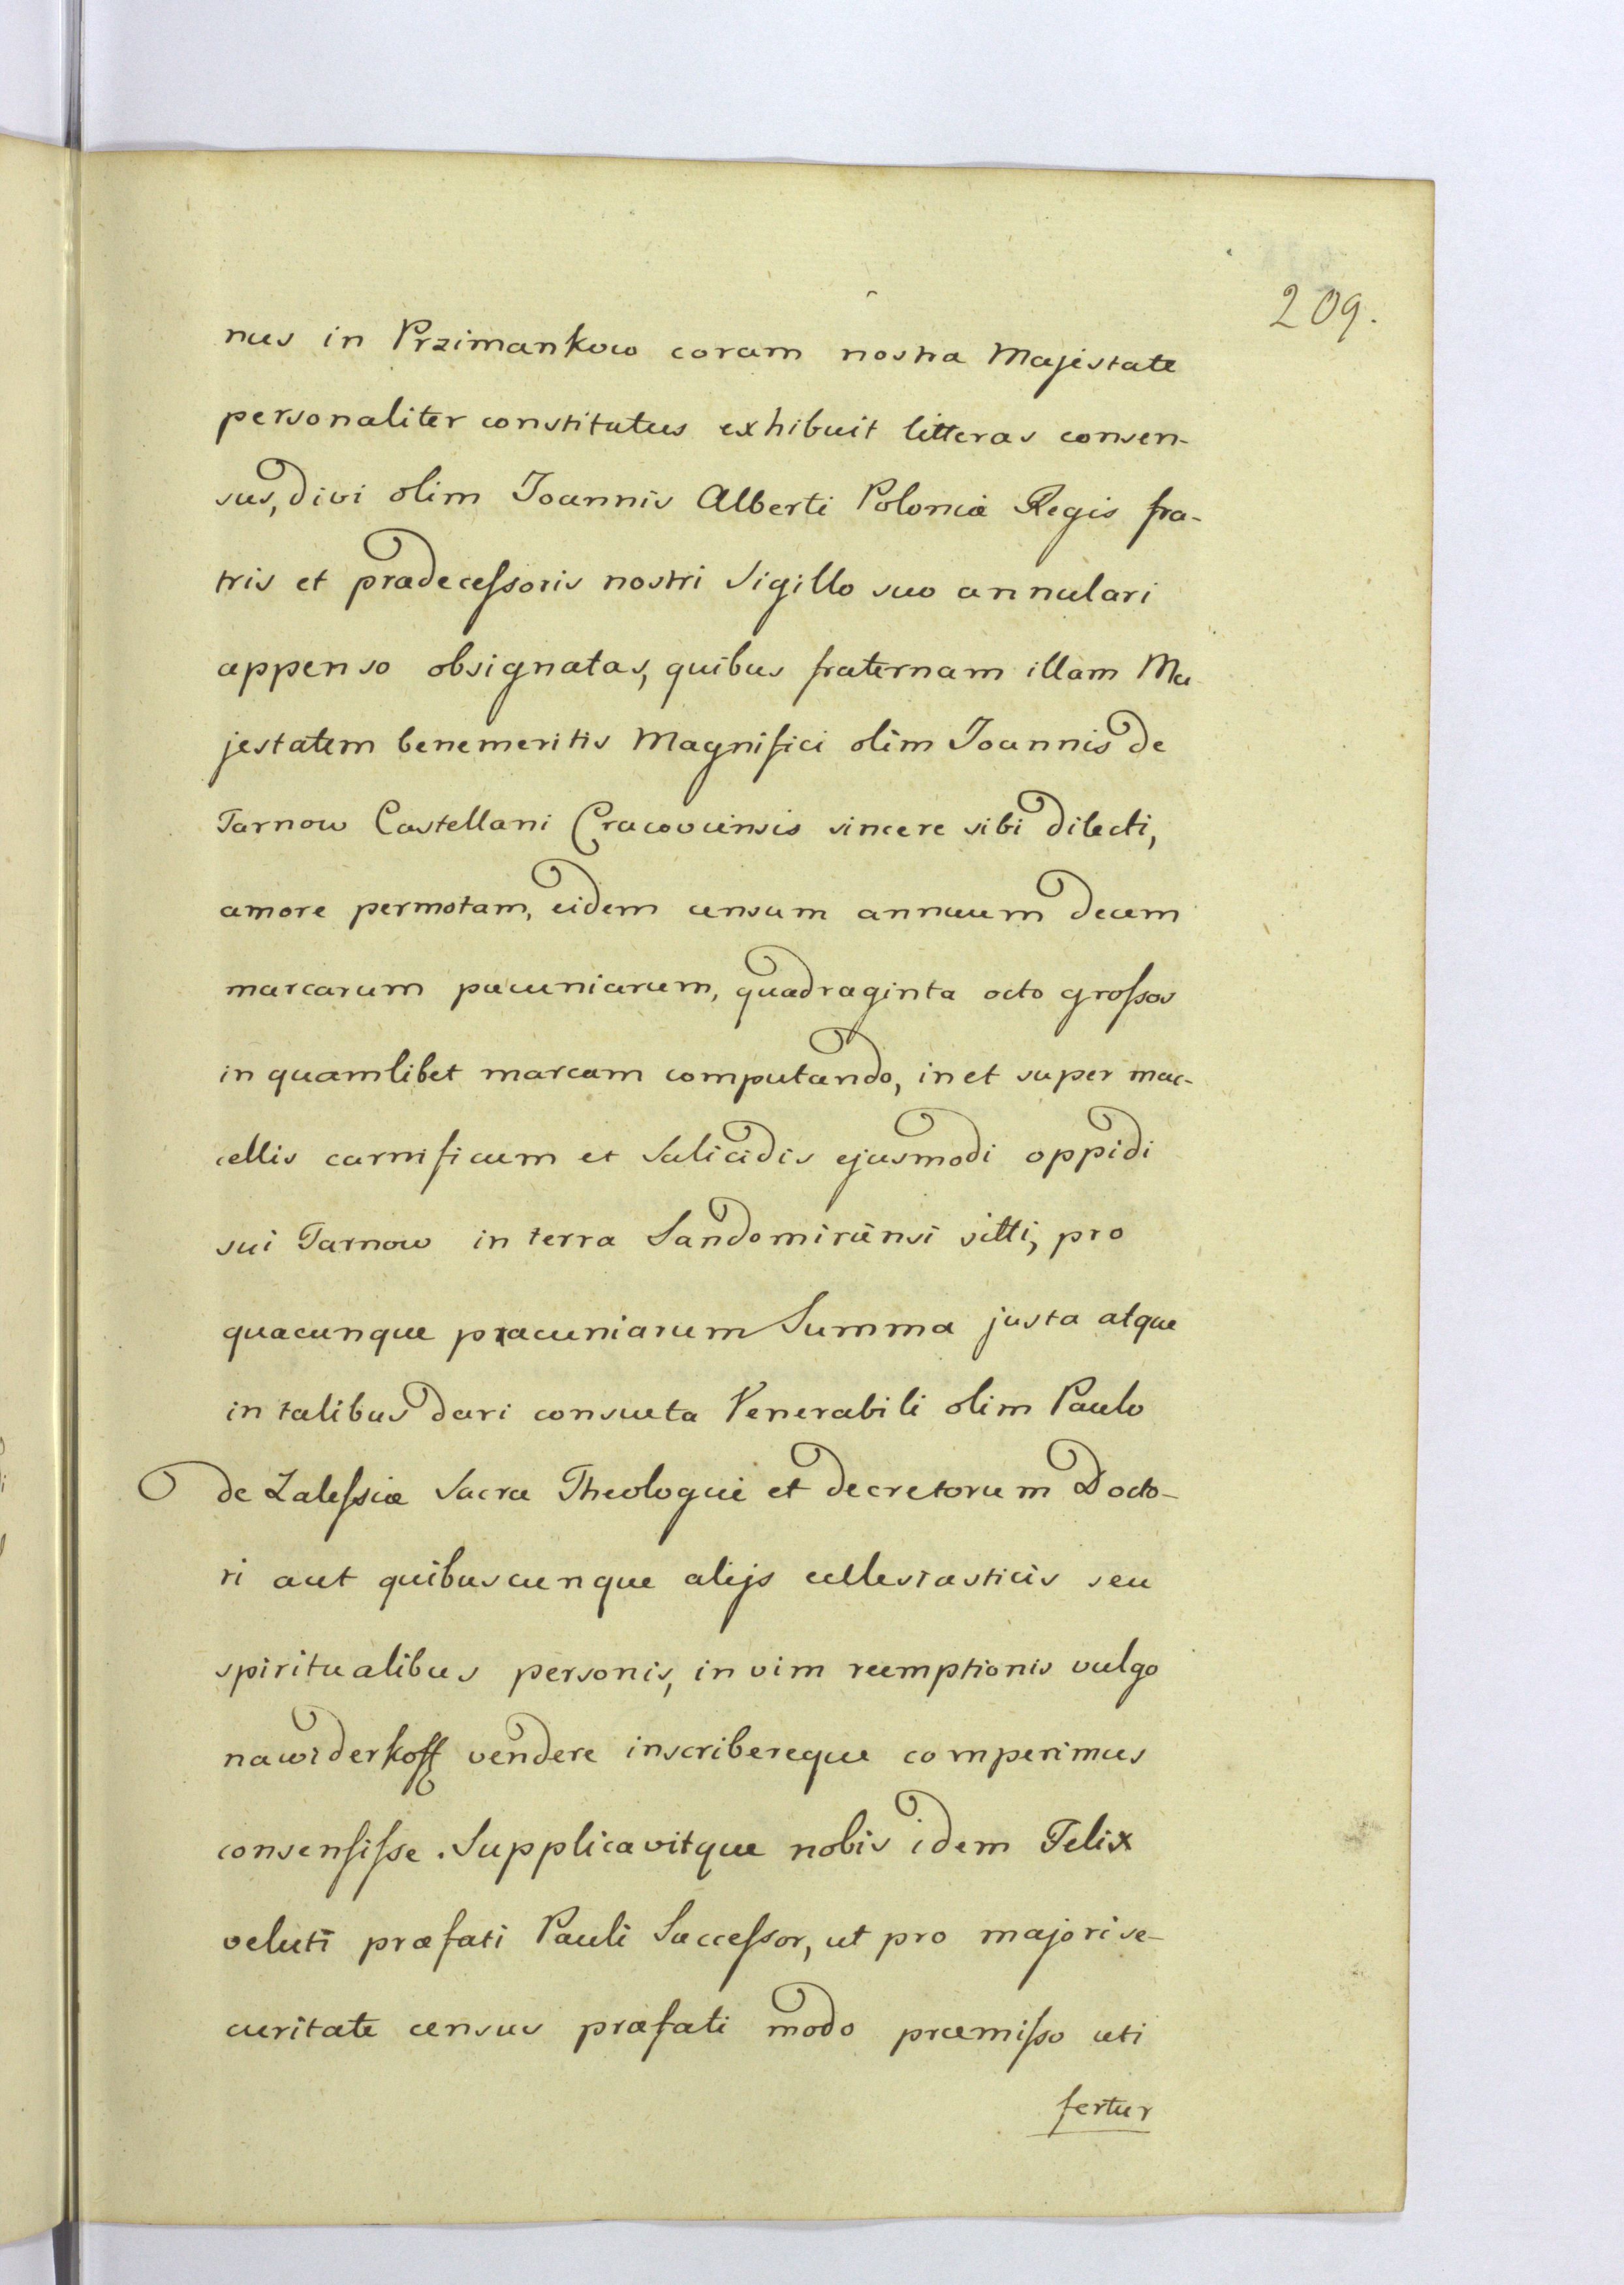 209.
nus in Przimankow coram nostra Majestate
personaliter constitutus exhibuit litteras consen-
sus, divi olim Joannis Alberti Poloniæ Regis fra-
tris et prædecessoris nostri Sigillo suo annulari
appenso obsignatas, quibus fraternam illam Ma
jestatem benemeritis Magnifici olim Joannis de
Tarnow Castellani Cracoviensis sincere sibi dilecti,
amore permotam, eidem censum annuum decem
marcarum pæcuniarum, quadraginta octo grossos
in quamlibet marcam computando, in et super mac-
cellis carnificum et Salicidis ejusmodi oppidi
sui Tarnow in terra Sandomiriensi sitti, pro
quacunque pæcuniarum Summa justa atque
in talibus dari consueta Venerabili olim Paulo
de Zalessie Sacræ Theologiæ et decretorum Docto-
ri aut quibuscunque alijs ecclesiasticis seu
spiritualibus personis, in vim reemptionis vulgo
nawiderkoff vendere inscribereque comperimus
consensisse. Supplicavitque nobis idem Felix
veluti præfati Pauli Successor, ut pro majori se-
curitate census præfati modo præmisso uti
fertur